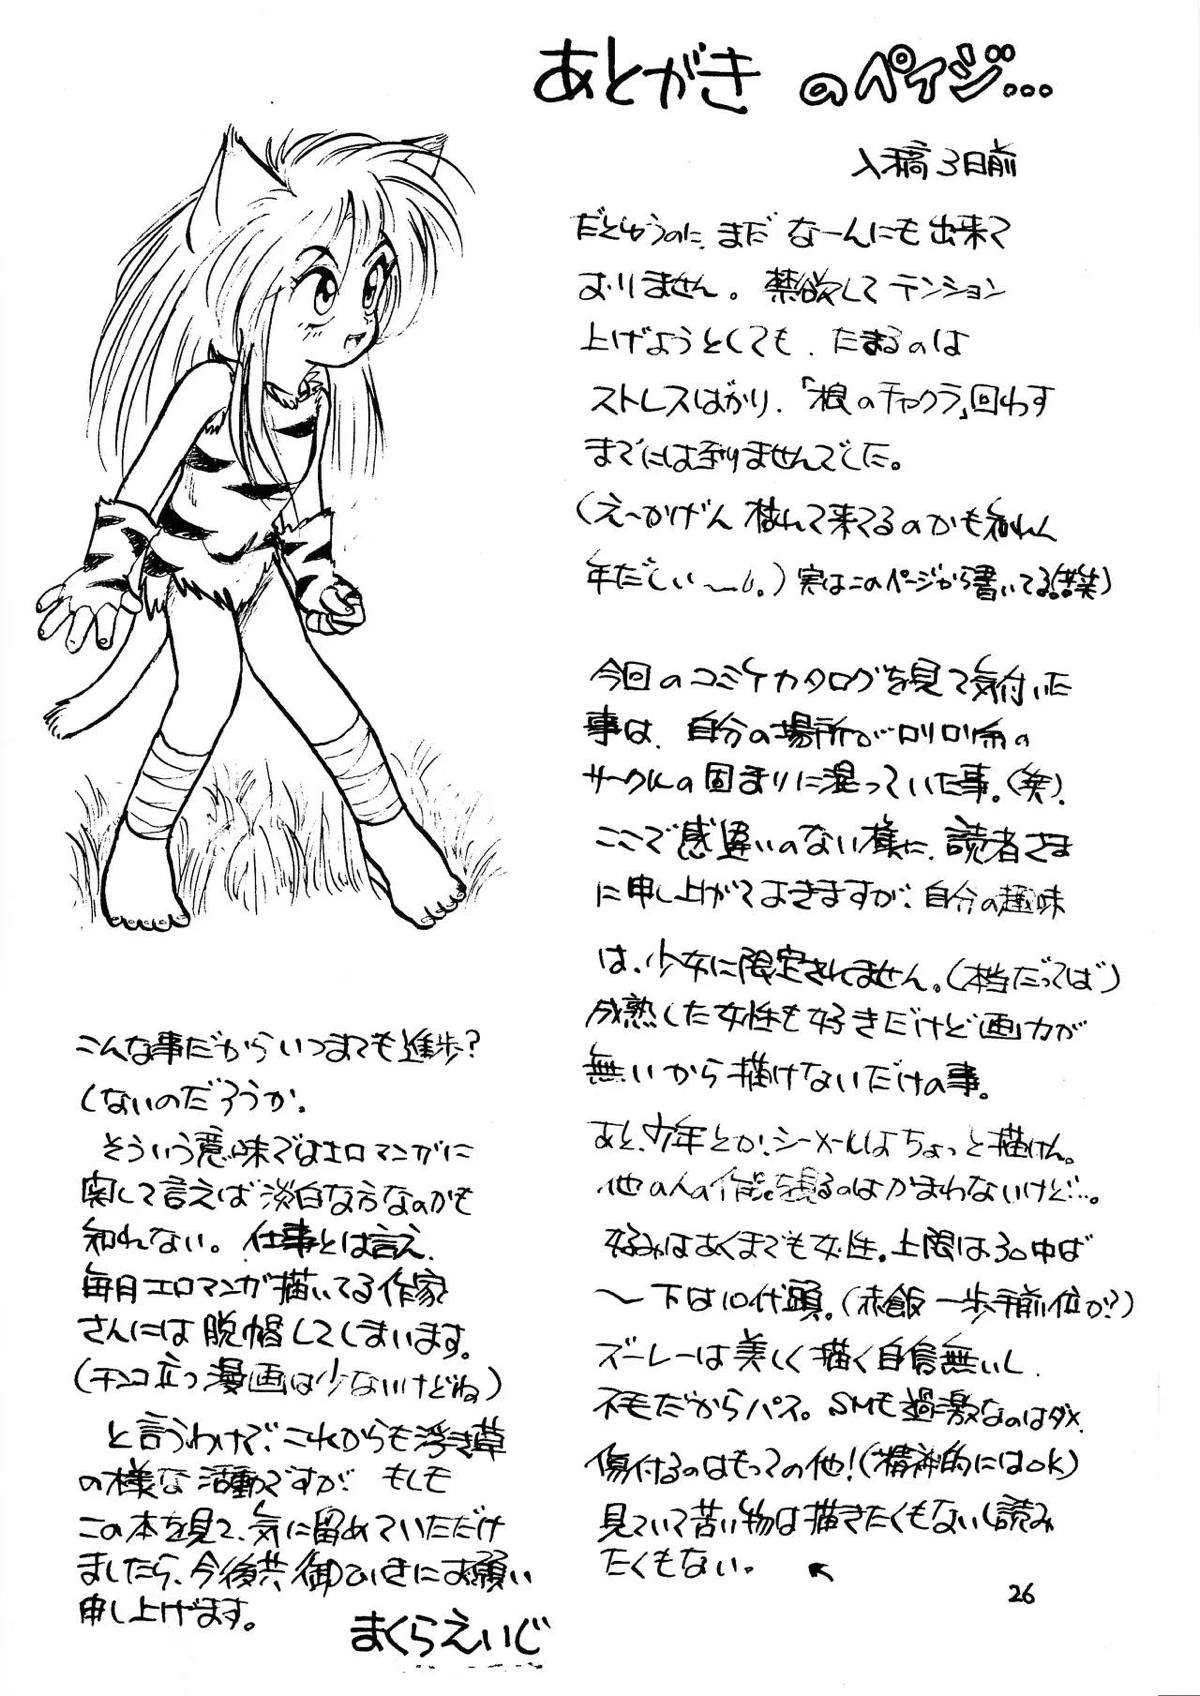 あとがき のペイジ…
入稿3日前
だとゆうのに、まだ なーんにも出来て
おりません。禁欲して テンション
上げようとしても、たまるのは
ストレスばかり、「根のチャクラ」回わす
までには到りませんでした。
(えーかげん 枯れて来てるのかも知れん
年だしぃ〜。) 実はこのページから書いてる。
今回のコミケカタログを見て気付いた
事は、自分の場所がロリロリ系の
サークルの固まりに混っていた事。(笑)。
ここで感違いのない様に、読者さま
に申し上げておきますが、自分の趣味
は、少女に限定されてません。(本当だってば)
成熟した女性も好きだけど画力が
無いから描けないだけの事。
あと、少年とか、シーメールはちょっと描けん。
他の人の作品を観るのはかまわないけど…。
好みはあくまでも女性。上限は30中ば
〜下は10代頭。(赤飯一歩手前位か?)
ズーレーは美しく描く自信無いし、
不毛だからパス。SMも過激なのはダメ、
傷付けるのはもっての他!(精神的にはOK)
見ていて苦い物は描きたくもないし読み
たくもない。
こんな事だからいつまでも進歩?
しないのだろうか。
そういう意味ではエロマンガに
関して言えば淡白な方なのかも
知れない。仕事とは言え、
毎月エロマンガ描いてる作家
さんには脱帽してしまいます。
(チンコ立つ漫画は少ないけどね)
と言うわけで、これからも浮き草
の様な活動ですが、もしも
この本を見て、気に留めていただけ
ましたら、今後共、御ひいきにお願い
申し上げます。
まくらえいじ
26